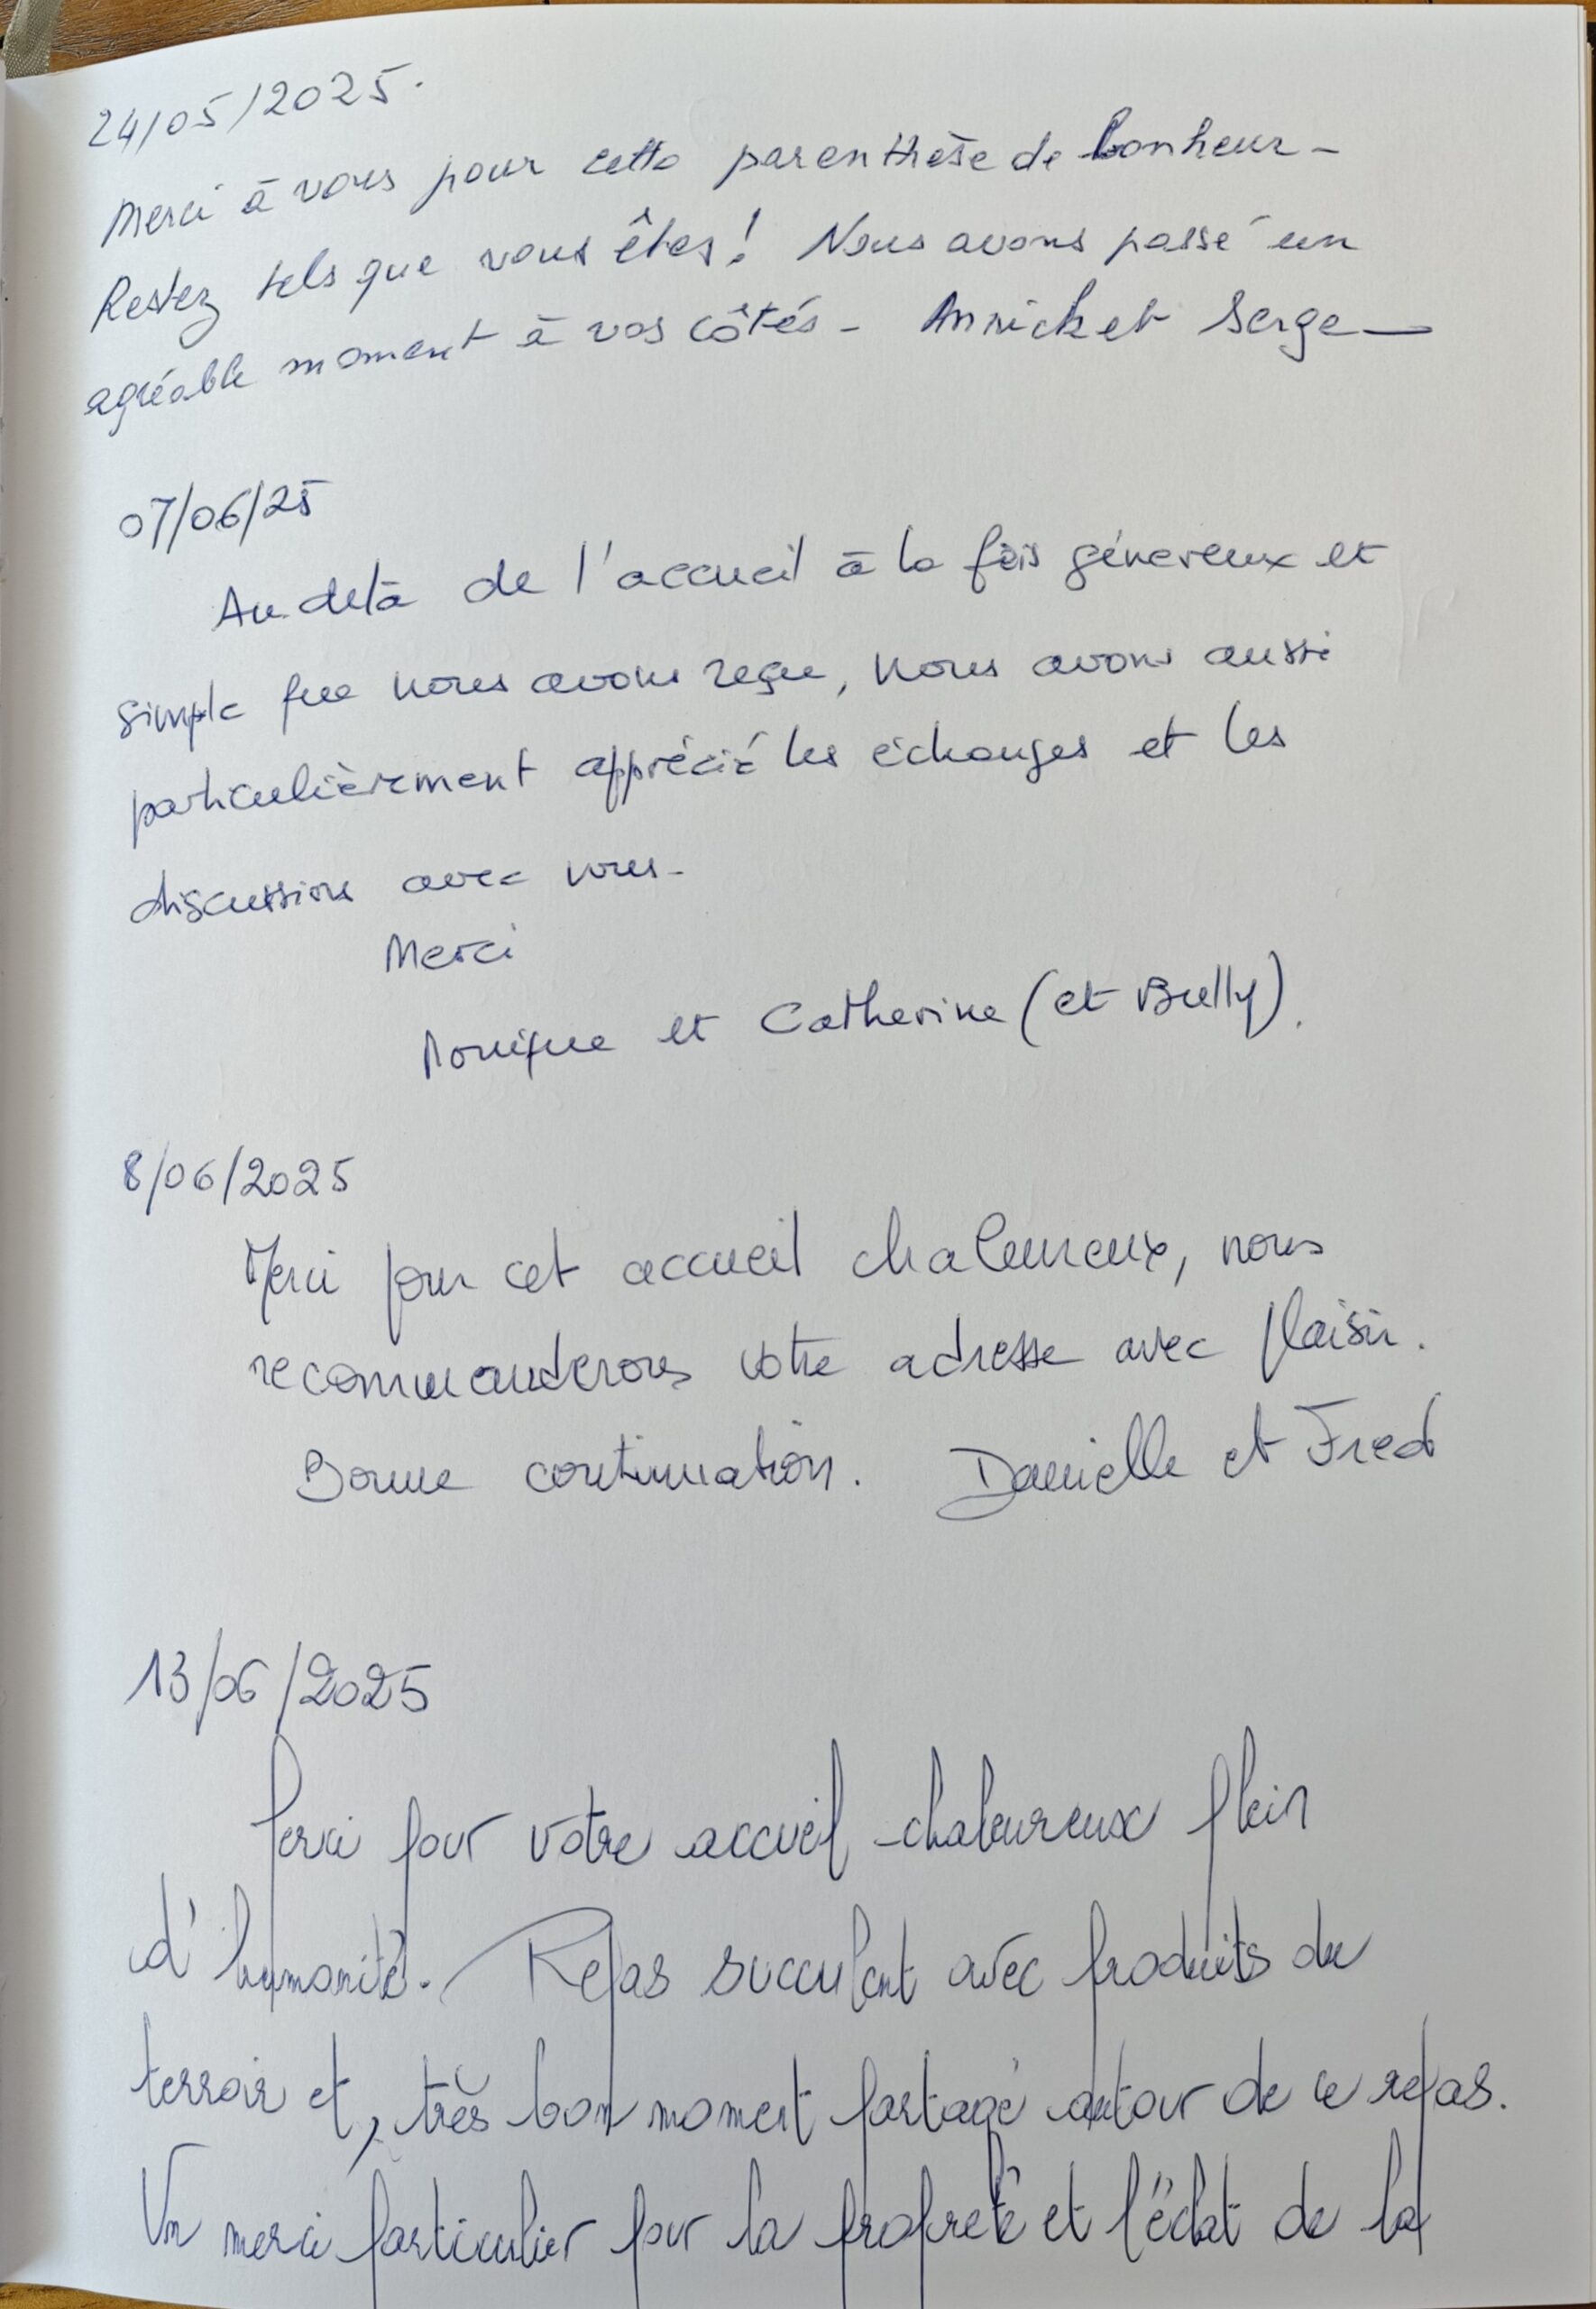 24/05/2025.
Merci à vous pour cette parenthèse de bonheur -
Restez tels que vous êtes ! Nous avons passé un
agréable moment à vos côtés - Annick et Serge
07/06/25
Au delà de l'accueil à la fois généreux et
simple que nous avons reçu, nous avons aussi
particulièrement apprécié les échanges et les
discussions avec vous -
Merci
Monique et Catherine (et Bully).
8/06/2025
Merci pour cet accueil chaleureux, nous
recommanderons votre adresse avec plaisir.
Bonne continuation. Danielle et Fred
13/06/2025
Merci pour votre accueil chaleureux plein
d'humanité. Repas succulent avec produits du
terroir et, très bon moment partagé autour de ce repas.
Un merci particulier pour la propreté et l'éclat de la